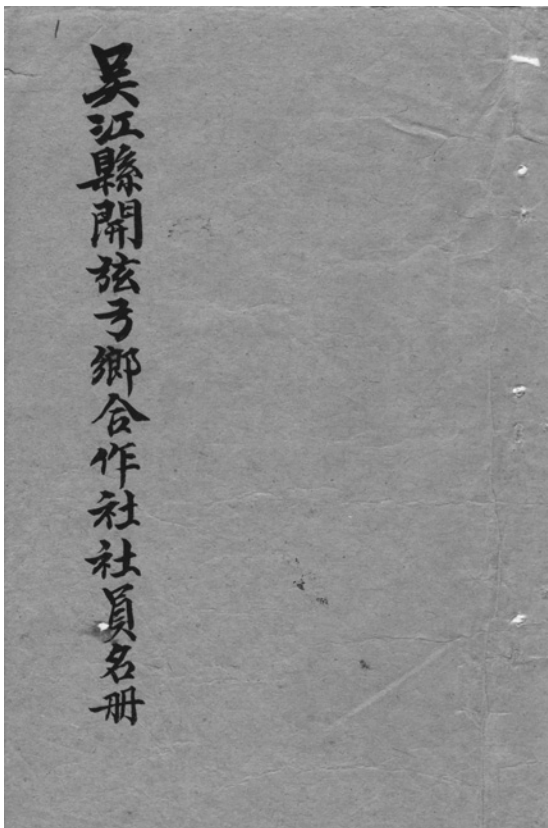 吴江縣開弦弓鄉合作社社員名册